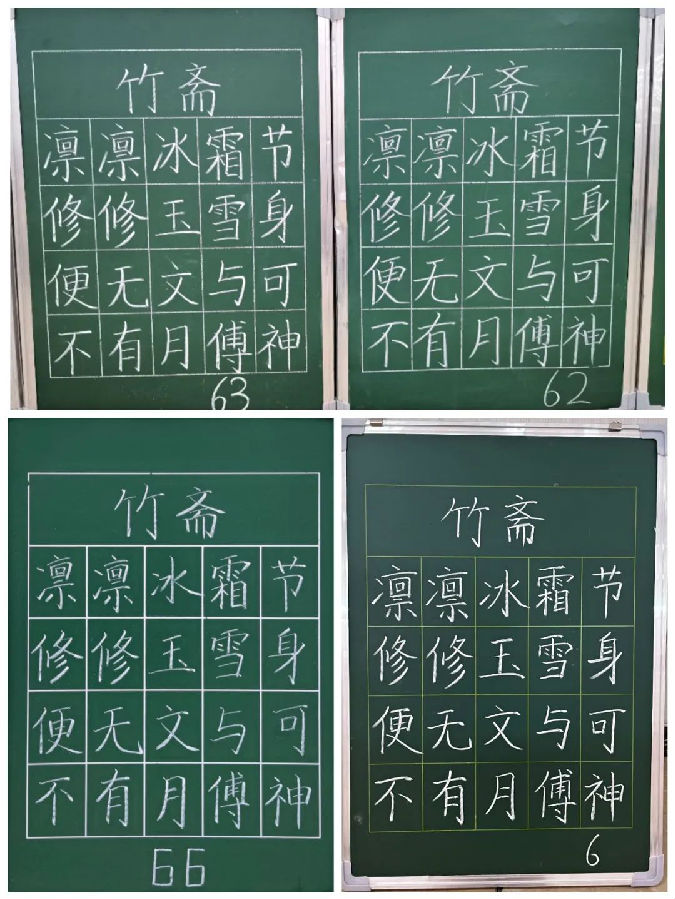 竹斋
凛凛冰霜节
修修玉雪身
便无文与可
不有月傅神
63
竹斋
凛凛冰霜节
修修玉雪身
便无文与可
不有月傅神
62
竹斋
凛凛冰霜节
修修玉雪身
便无文与可
不有月傅神
66
竹斋
凛凛冰霜节
修修玉雪身
便无文与可
不有月傅神
6